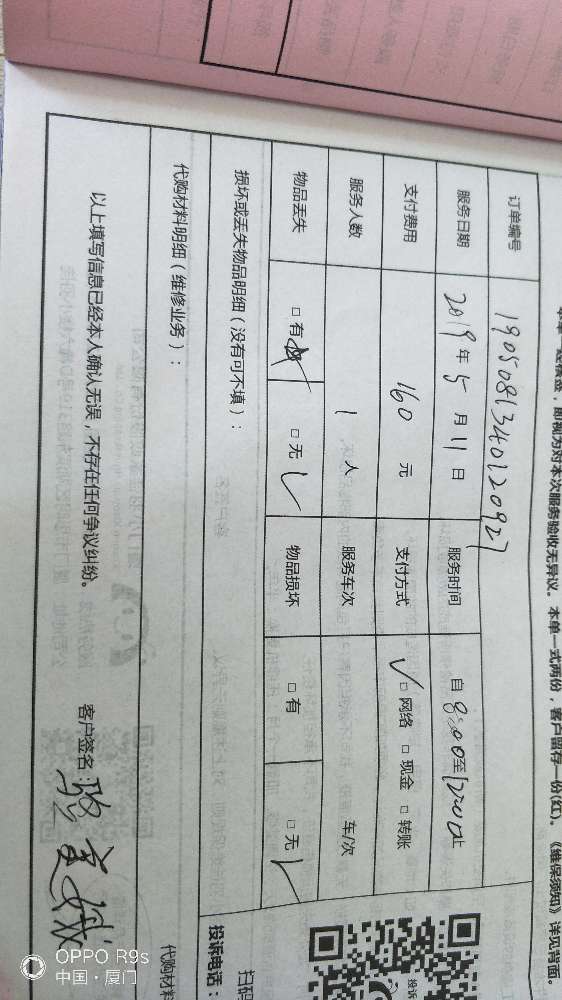 本单一经核签，即视为对本次服务验收无异议。本单一式两份，客户留存一份(红)。《维保须知》详见背面。
订单编号 1905081340120927
服务日期 2019年5月11日 服务时间 自8:00至12:00止
支付费用 160元 支付方式 ✓□网络 □现金 □转账
服务人数 1人 服务车次 车/次
物品丢失 □有 □无 ✓ 物品损坏 □有 □无 ✓
损坏或丢失物品明细（没有可不填）：
代购材料明细（维修业务）：
以上填写信息已经本人确认无误，不存在任何争议纠纷。 客户签名：
投诉电话：
扫码
代购材料
投诉
OPPO R9s
中国·厦门